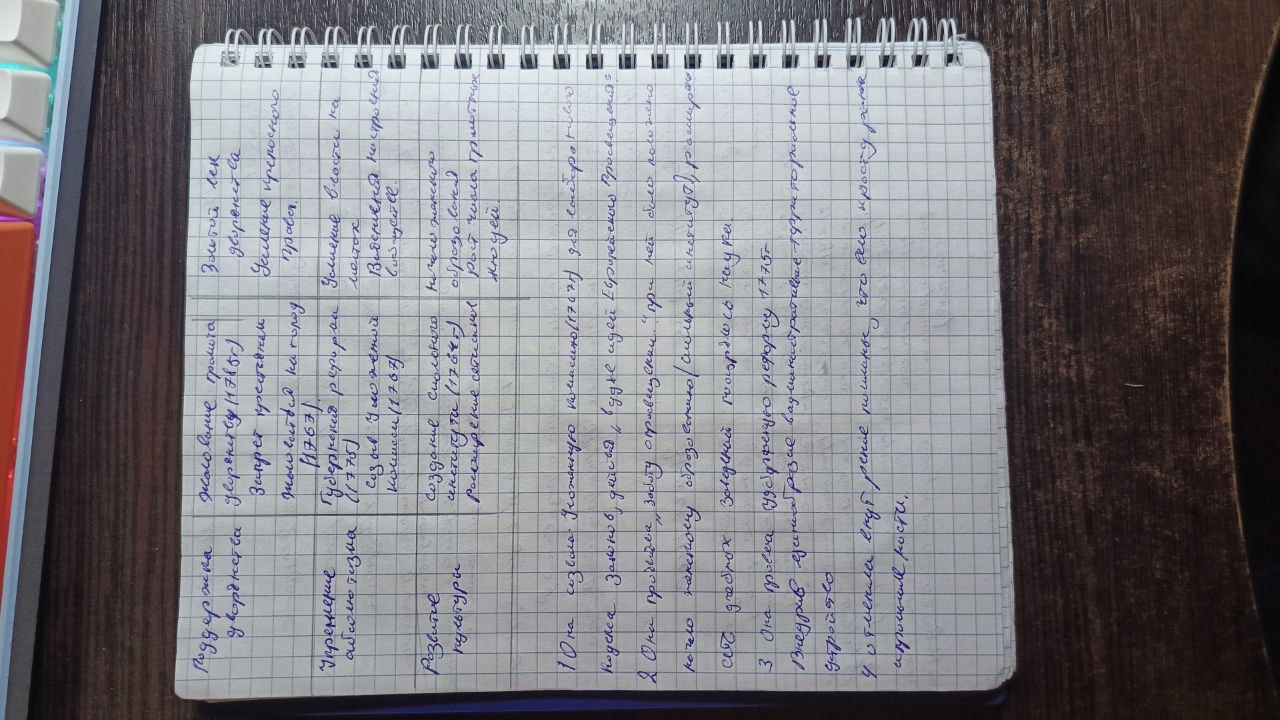 Поддержка дворянства
Жалование грамота дворянству (1785г)
Запрет крестьянам жаловаться на господ (1767)
Золотой век дворянства
Усиление крепосного права.
Укрепление абсолютизма
Губернская реформа (1775)
Созыв Уложенной комиссии (1767)
Усиление власти на местах
Выявления настроения в обществе.
Развитие культуры
Создание Смольного института (1764г)
Расширение
начало женского образования
рост числа грамотных людей
1 Она созвала Уложенную комиссию (1767) для
кодекса законов, действуя в духе идей Европейского Просвещения
2 Она проявляла "заботу о просвещении" при ней было положено
начало женскому образованию (Смольный институт),
сеть учебных заведений поощрялось наука
3 Она провела губернскую реформу 1775
Внедрив единообразие в административное территориальное
устройство
4 отменила внутрение пошлины, что вело к росту рынка
и промышленности.